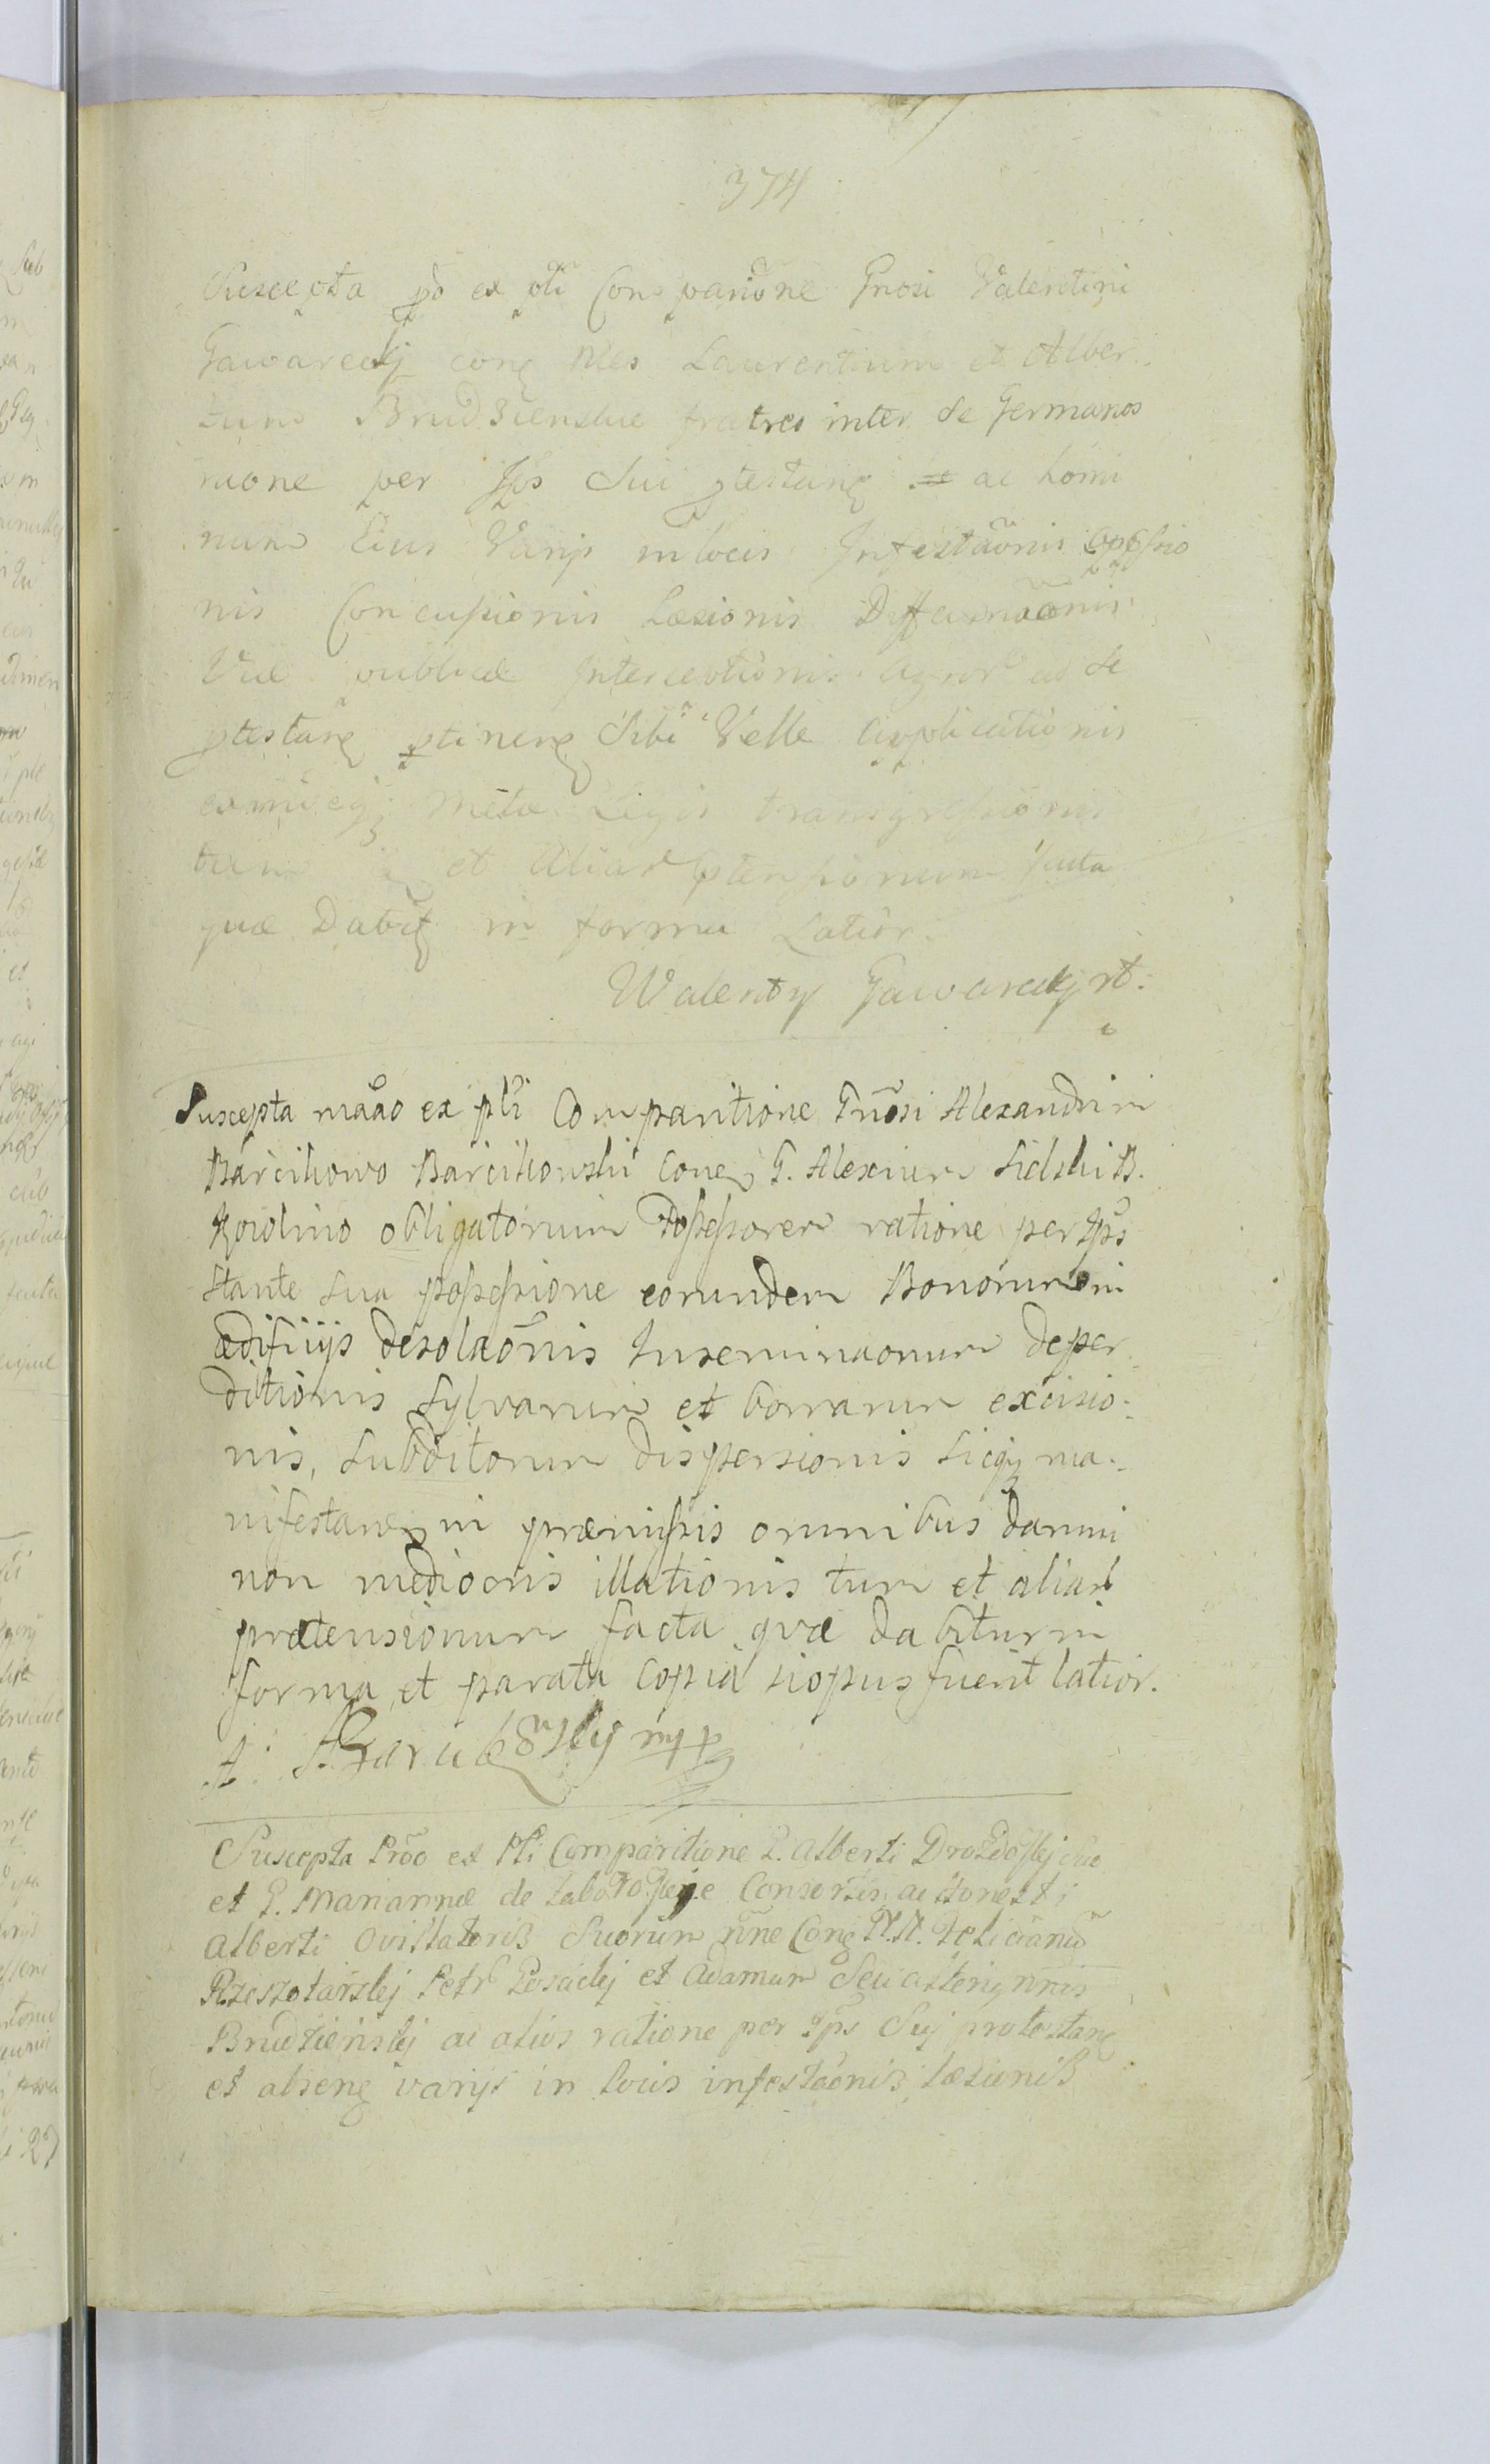 374
Suscepta p̃o ex pt̃i Comparitõne Gnosi Valentini
Gawareckj cong Nles Laurentium et Alber
tum Brudzienskie fratres inter se Germanos
racione per Jp̃s Sui ptestang ac homi
num Eius Varijs in locis Infestaõnis opp̃ssio
nis Concussionis Læsionis Diffamaõnis
Viæ publicæ Interceptionis agror ad se
ptestang ptineng Sibi Velle applicationis
Metæ Legis transgressionis
tum et Aliar ptensionum facta
quæ Dabitg in forma Latior.
Walenty Gawareckj
Suscepta mãao ex pt̃i Comparitione Gñosi Alexandri in
Barcikowo Barcikowski coneg G. Alexium Sielski B.
obligatorium Possessorem ratione per Jp̃s
stante sua possessione eorundem Bonorum in
ædifiijs desolaõnis Inseminaonum deper
ditionis sylvarum et borrarum excisio
nis, subditorum dispersionis sicq ma
nifestaneg in præmissis omnibus damni
non mediocris illationis tum et aliar
prætensionum facta quæ dabitur in
forma et parata copia si opus fuerit latior.
A: mp
Suscepta Prõo ex Pt̃i Comparitione L. Alberti
et G. Mariannæ de Consortis, ac Honesti
Alberti Ovillatoris Suorum ñne Cong N.N. Felicianũ
Rzeszotarskj Petr et Adamum Seu alterig nñis
Brudzieńskj ac alios ratione per Jp̃s Suj protestang
et abseng varijs in locis infestaõnis læsionis